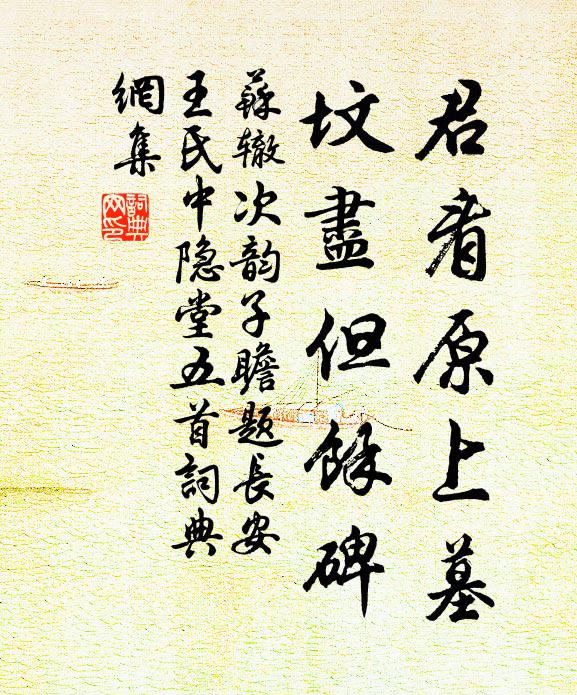 君看原上墓
坟盡但餘碑
蘇辙次韵子瞻题长安
王氏中隐堂五首詞典
網集
詞典
网印